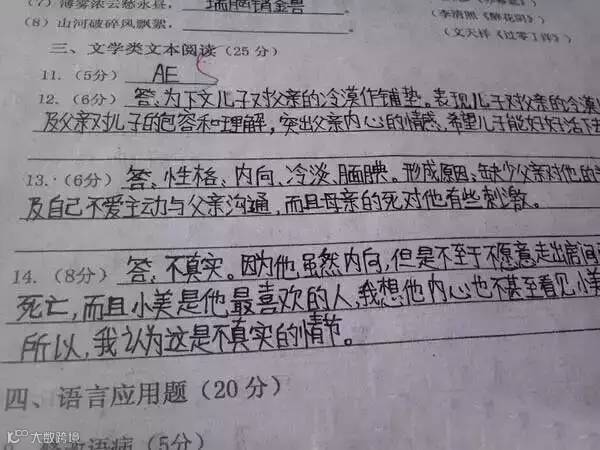 (7) 薄雾浓云愁永昼，瑞脑销金兽
(李清照《醉花阴》)
(8) 山河破碎风飘絮，
(文天祥《过零丁洋》)
三、文学类文本阅读（25分）
11.（5分） AE
12.（6分）答：为下文儿子对父亲的冷漠作铺垫。表现儿子对父亲的冷漠
及父亲对儿子的包容和理解，突出父亲内心的情感，希望儿子能好好活下去
13.（6分）答：性格：内向、冷淡、腼腆。形成原因：缺少父亲对他的
及自己不爱主动与父亲沟通，而且母亲的死对他有些刺激。
14.（8分）答：不真实。因为他虽然内向，但是不至于不愿意走出房间
死亡，而且小美是他最喜欢的人，我想他内心也不甚至看见小美
所以，我认为这是不真实的情节。
四、语言应用题（20分）
修改语病（5分）
大数跨境